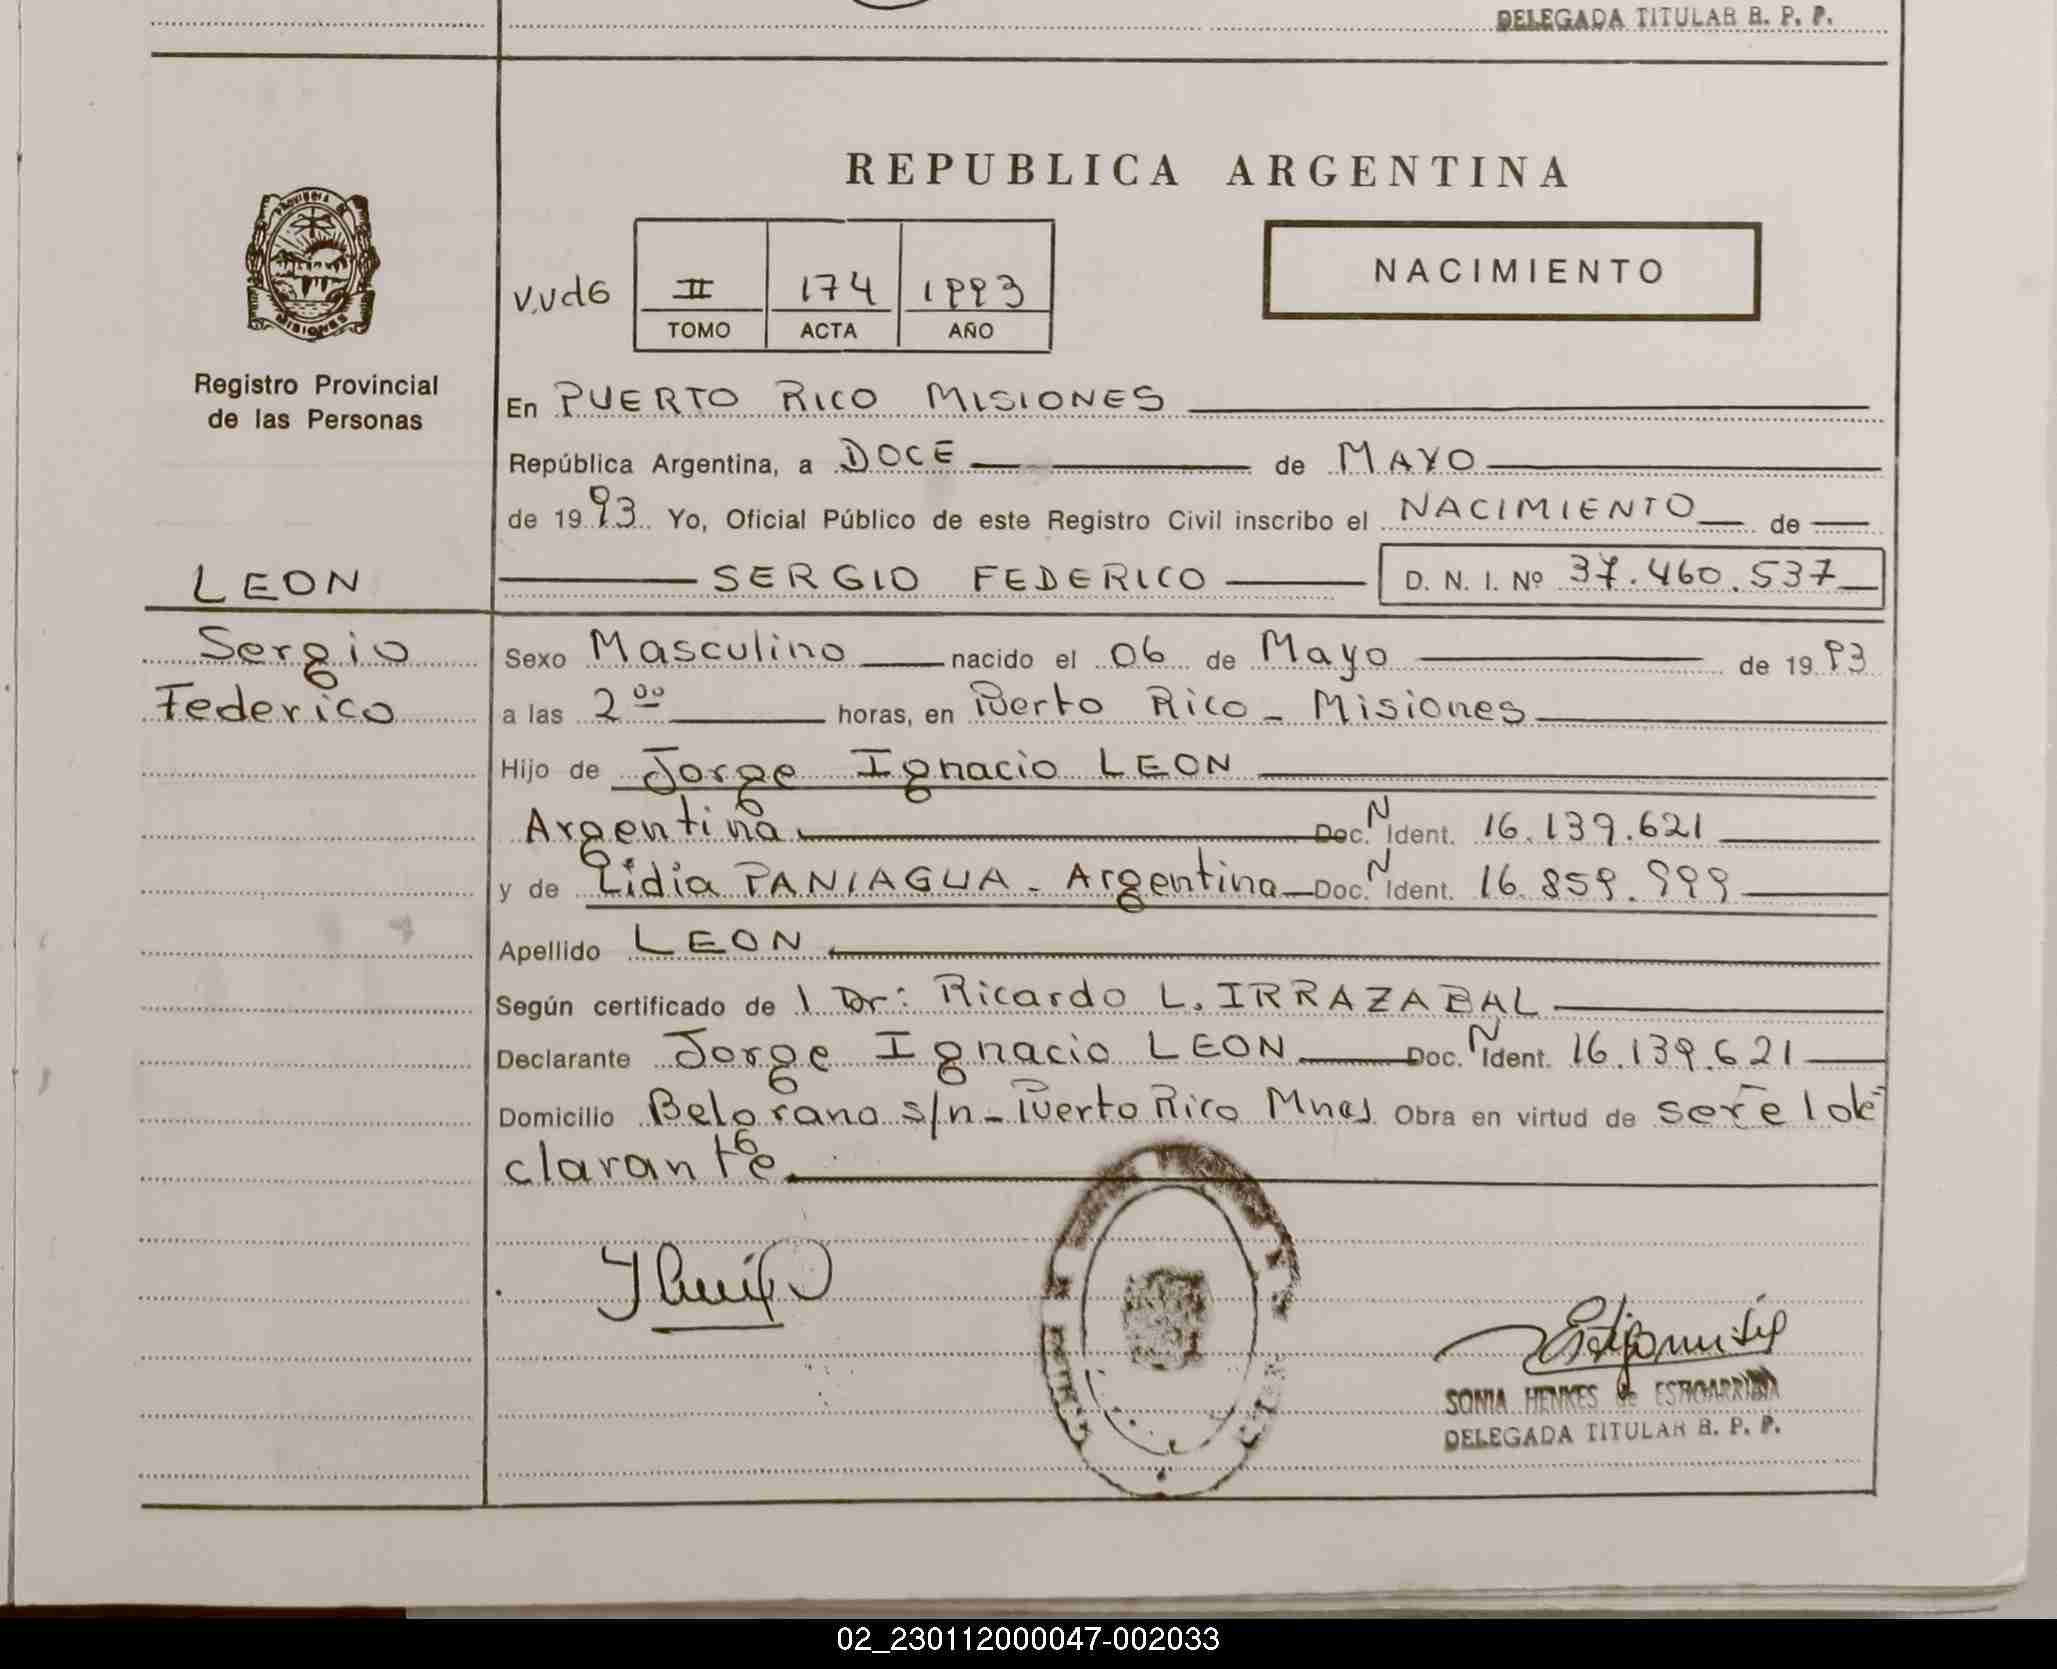 DELEGADA TITULAR R. P. P.
REPUBLICA ARGENTINA
PROVINCIA DE
MISIONES
NACIMIENTO
II 174 1993
TOMO ACTA AÑO
Registro Provincial
de las Personas
En PUERTO RICO MISIONES
República Argentina, a DOCE de MAYO
de 1993 Yo, Oficial Público de este Registro Civil inscribo el NACIMIENTO de
LEON
SERGIO FEDERICO D. N. I. Nº 37.460.537
Sergio
Federico
Sexo Masculino nacido el 06 de Mayo de 1993
a las 2 00 horas, en Puerto Rico - Misiones
Hijo de Jorge Ignacio LEON
Argentina Doc. N Ident. 16.139.621
y de Lidia PANIAGUA - Argentina Doc. N Ident. 16.859.999
Apellido LEON
Según certificado de l Dr: Ricardo L. IRRAZABAL
Declarante Jorge Ignacio LEON Doc. N Ident. 16.139.621
Domicilio Belgrano s/n - Puerto Rico Mnes Obra en virtud de ser el de
clarante
SONIA HENKES de ESTIGARRIBIA
DELEGADA TITULAR R. P. P.
02_230112000047-002033